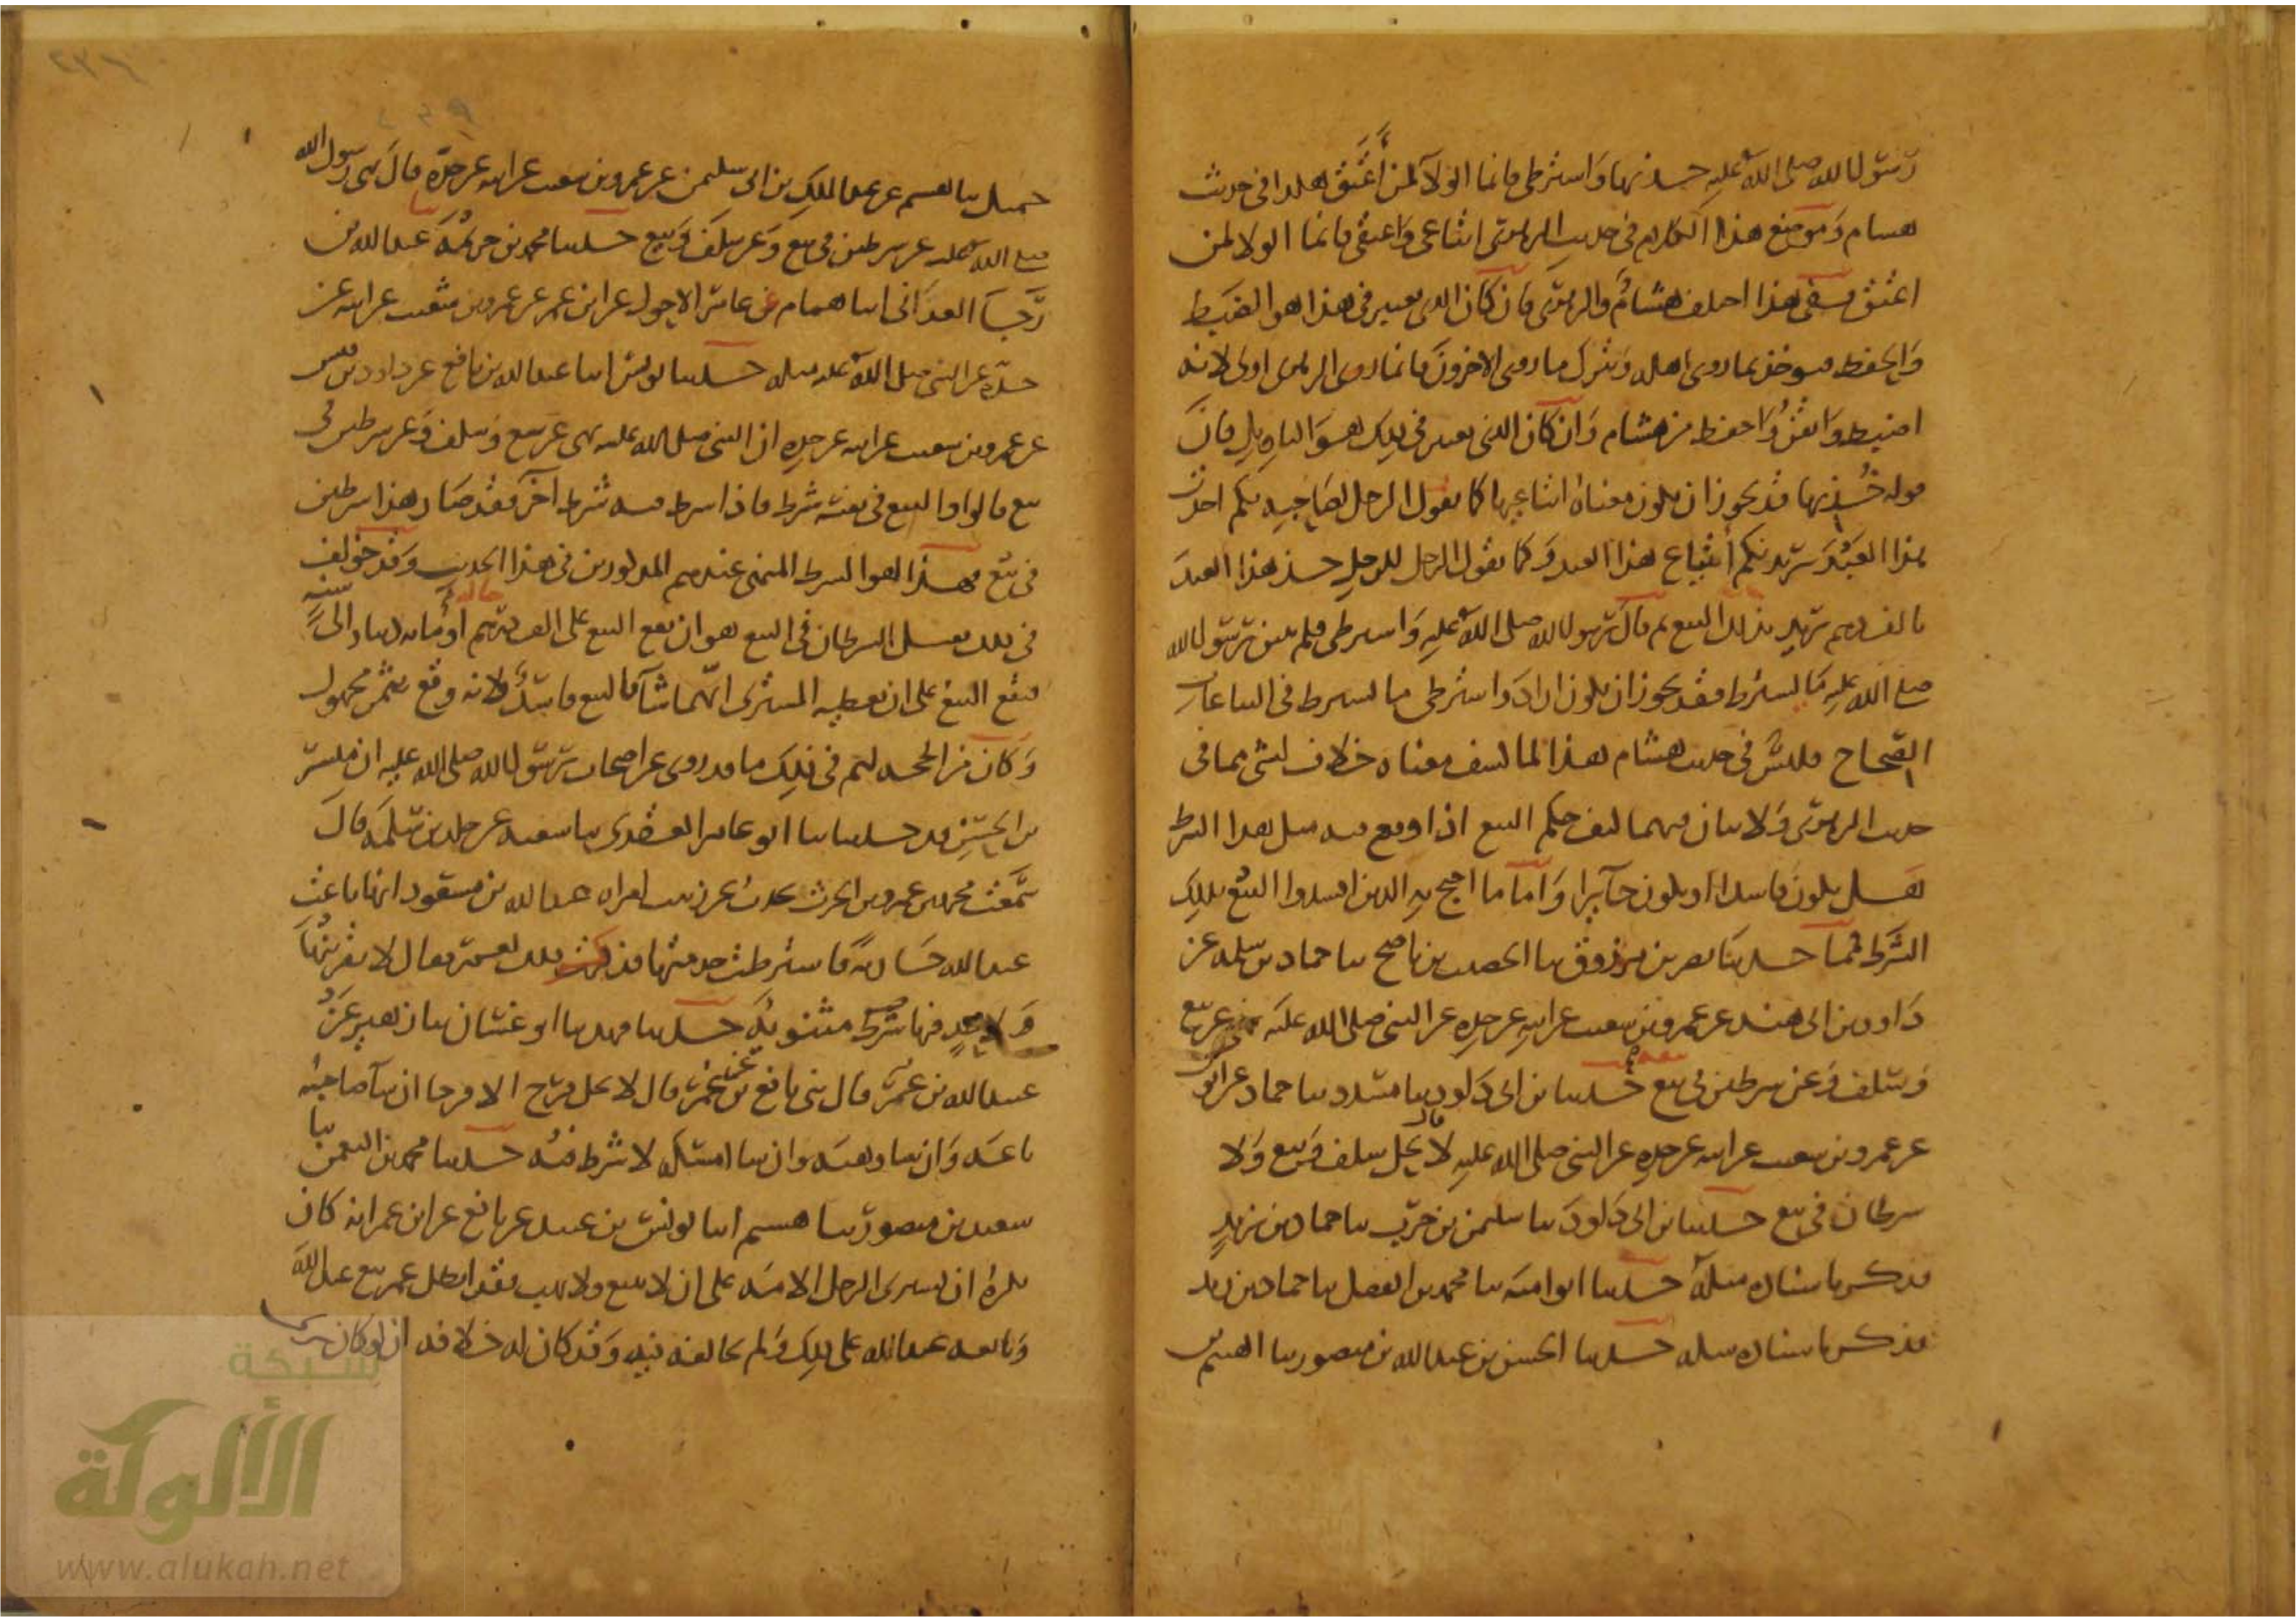 رسول الله صلى الله عليه خذيها واشترطي فانما الولاء لمن أعتق هكذا في حديث
هشام وموضع هذا الكلام في حديث الزهري ابتاعي واعتقي فانما الولا لمن
اعتق ففي هذا اختلف هشام والزهري فان كان الذي يعتبر في هذا هو الضبط
والحفظ فيوخذ بما روى اهله ويترك ما روى الاخرون فانما روى الزهري اولى لانه
اضبط واتقن واحفظ من هشام وان كان الذي يعتبر في ذلك هو التاويل فان
قوله خذيها قد يجوز ان يكون معناه ابتاعيها كما يقول الرجل لصاحبه بكم اخذت
هذا العبد يريد بكم ابتياع هذا العبد وكما يقول الرجل للرجل خذ هذا العبد
بالف درهم يريد بذلك البيع ثم قال رسول الله صلى الله عليه واشترطي فلم يبين رسول الله
صلى الله عليه ما يشترط فقد يجوز ان يكون اراد واشترطي ما يشترط في البياعات
الصحاح فليس في حديث هشام هذا لما كشف معناه خلاف لشي مما في
حديث الزهري ولا بيان فيهما كيف حكم البيع اذا وقع فيه مثل هذا الشرط
هل يكون فاسدا او يكون جايزا واما ما احتج به الذين افسدوا البيع بذلك
الشرط فما حدثنا نصر بن مرزوق نا الخصيب بن ناصح نا حماد بن سلمه عن
داود بن ابي هند عن عمرو بن شعيب عن ابيه عن جده عن النبي صلى الله عليه نهى عن بيع
وسلف وعن شرطين في بيع حدثنا بن ابي داود نا مسدد نا حماد عن ايوب
عن عمرو بن شعيب عن ابيه عن جده عن النبي صلى الله عليه قال لا يحل سلف وبيع ولا
شرطان في بيع حدثنا بن ابي داود نا سليمن بن حرب نا حماد بن زيد
فذكر باسناده مثله حدثنا ابو اميه نا محمد بن الفضل نا حماد بن زيد
فذكر باسناده مثله حدثنا الحسن بن عبد الله بن منصور نا الهيثم بن
جميل نا هشيم عن عبد الملك بن ابي سليمن عن عمرو بن شعيب عن ابيه عن جده قال نهى رسول الله
صلى الله عليه عن شرطين في بيع وعن سلف وبيع حدثنا محمد بن خزيمه نا عبد الله بن
رجا الغداني انا همام عن عامر الاحول عن ابن عمر عن عمرو بن شعيب عن ابيه عن
جده عن النبي صلى الله عليه مثله حدثنا يونس انا عبد الله بن نافع عن داود بن قيس
عن عمرو بن شعيب عن ابيه عن جده ان النبي صلى الله عليه نهى عن بيع وسلف وعن شرطين في
بيع قالوا والبيع في نفسه شرط فاذا اشترط فيه شرط آخر فقد صار هذا شرطين
في بيع فهذا هو الشرط المنهي عندهم المذكور في هذا الحديث وقد خولف
في ذلك فقيل الشرطان في البيع هو ان يقع البيع على الف درهم حالة او مائه دينار الى سنة
فيقع البيع على ان يعطيه المشتري ايهما شآ فالبيع فاسد لانه وقع بثمن مجهول
وكان من الحجه لهم في ذلك ما قد روي عن اصحاب رسول الله صلى الله عليه ان مبشر
بن الحسن قد حدثنا نا ابو عامر العقدي نا شعبه عن خالد بن سلمه قال
سمعت محمد بن عمرو بن الحرث يحدث عن زينب امراه عبد الله بن مسعود انها باعت
عبد الله جاريه فاشترطت خدمتها فذكرت ذلك لعمر فقال لا يقربنها
ولاحد فيها شرط مثنويه حدثنا فهد نا ابو غسان نا زهير عن
عبيد الله بن عمر قال ني نافع عن بن عمر قال لا يحل فرج الا فرجا ان شآ صاحبه
باعه وان شا وهبه وان شا امسكه لا شرط فيه حدثنا محمد بن النعمن نا
سعيد بن منصور نا هشيم انا يونس بن عبيد عن نافع عن ابن عمر انه كان
يكره ان يشتري الرجل الامه على ان لا يبيع ولا يهب فقد ابطل عمر بيع عبد الله
وتابعه عبد الله على ذلك ولم يخالفه فيه وقد كان له خلافه ان لو كان يرى
شبكة
الألوكة
www.alukah.net